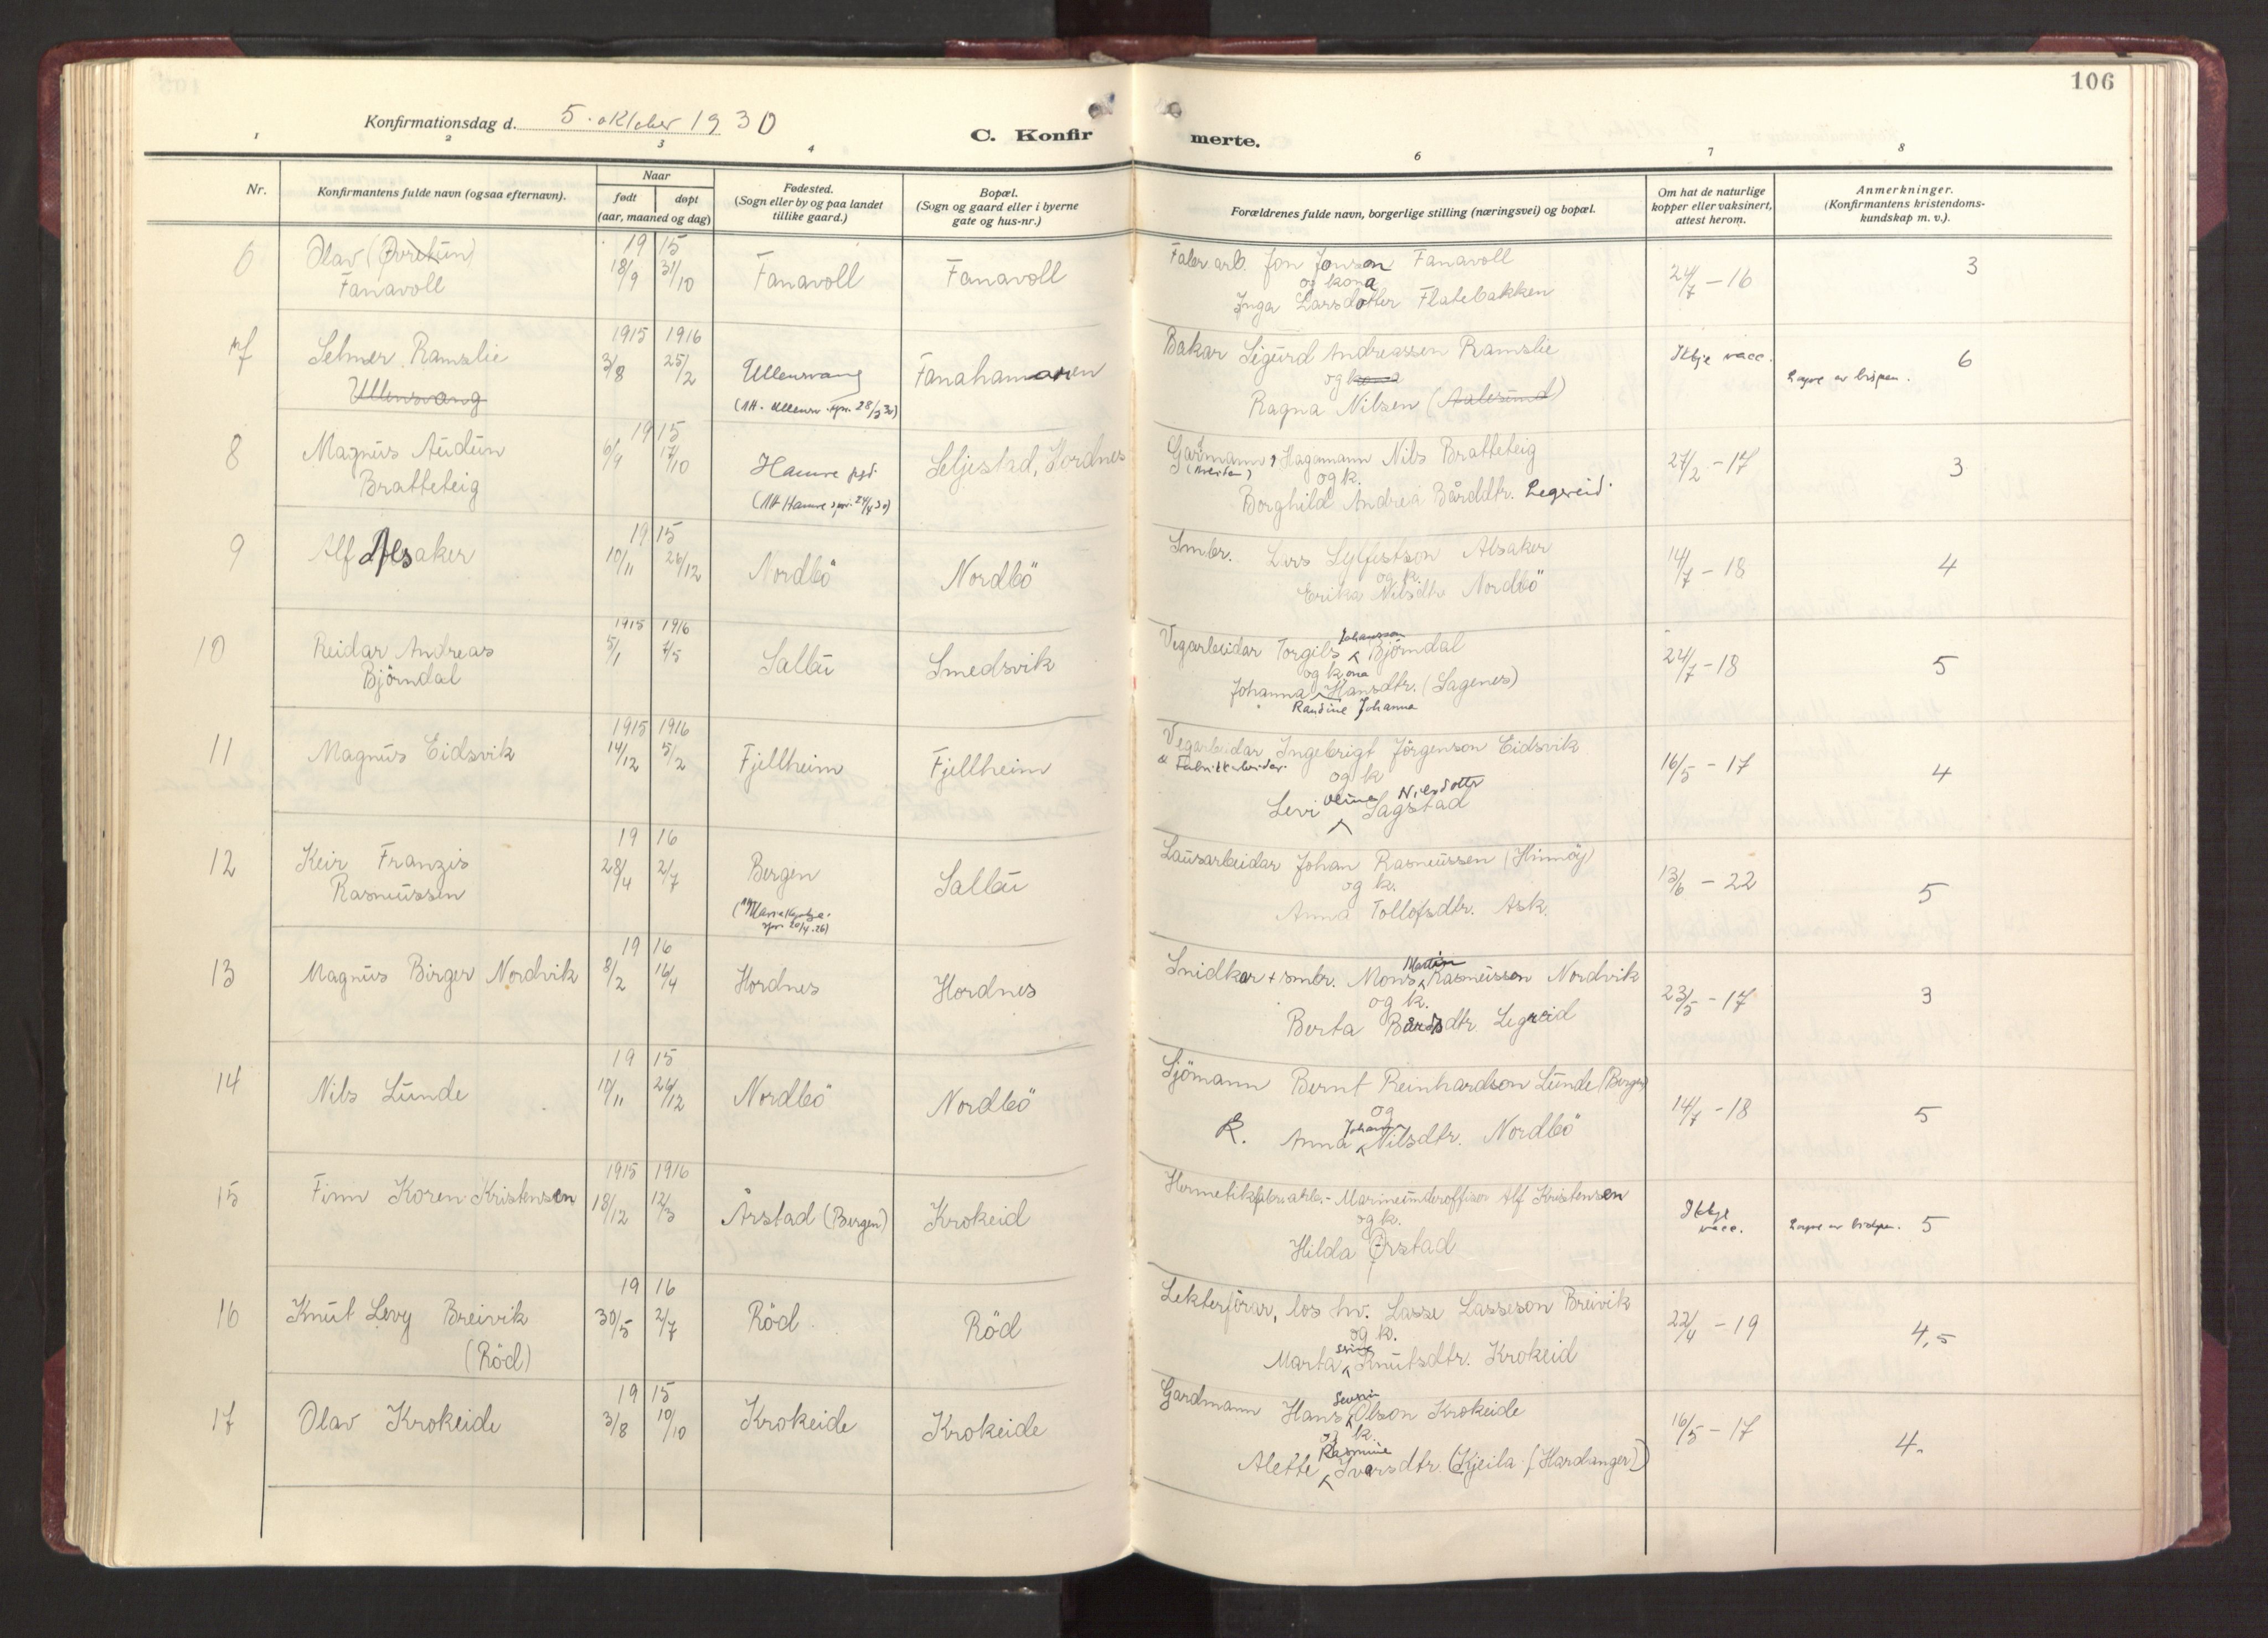 106
Konfirmationsdag d. 5. oktober 1930
C. Konfirmerte.
1 2 3 4 6 7 8
Nr.
Konfirmantens fulde navn (ogsaa efternavn).
Naar
født døpt
(aar, maaned og dag)
Fødested.
(Sogn eller by og paa landet
tillike gaard.)
Bopæl.
(Sogn og gaard eller i byerne
gate og hus-nr.)
Forældrenes fulde navn, borgerlige stilling (næringsvei) og bopæl.
Om hat de naturlige
kopper eller vaksinert,
attest herom.
Anmerkninger.
(Konfirmantens kristendoms-
kundskap m. v.).
6 Olav (Øvretun) 19 15
Fanavoll 18/9 31/10 Fanavoll Fanavoll
arb. Jon Jonson Fanavoll
og kona
Inga Larsdotter Flatebakken
24/7 - 16 3
7 Selmer Ramslie 1915 1916
Ullensvang 3/8 25/2 Ullensvang Fanahamaren
Bakar Sigurd Andreassen Ramslie
og kona
Ragna Nilsen (Aalesund)
Ikkje vacc. Løyve av bispen. 6
8 Magnus Audun 19 15
Bratteteig 6/9 17/10 Hamre Seljestad, Hordnes
Garmann, Hagamann Nils Bratteteig
og k.
Borghild Andrea Bårddtr. Legreid
27/2 - 17 3
9 Alf Alsaker 19 15
10/11 26/12 Nordbö Nordbö
Smbr. Lars Sylfestson Alsaker
og k.
Erika Nilsdtr Nordbö
14/7 - 18 4
10 Reidar Andreas 1915 1916
Björndal 5/1 7/5 Sallu Smedsvik
Vegarbeidar Torgils Johansson Björndal
og kona
Johanna Hansdtr. (Sagenes)
Randine Johanna
24/7 - 18 5
11 Magnus Eidsvik 1915 1916
14/12 5/2 Fjellheim Fjellheim
Vegarbeidar Ingebrigt Jörgenson Eidsvik
& Fabrikkarbeidar.
og k
Levi Oline Nilsdottr Sagstad
16/5 - 17 4
12 Keir Franzis 19 16
Rasmussen 28/4 2/7 Bergen Sallu
Lausarbeidar Johan Rasmussen (Hinnöy)
og k.
Anna Tollofsdtr. Ask.
13/6 - 22 5
13 Magnus Birger Nordvik 19 16
8/2 16/4 Hordnes Hordnes
Snidkar + smbr. Mons Martin Rasmussen Nordvik
og k.
Berta Bårdsdtr Legreid
23/5 - 17 3
14 Nils Lunde 19 15
10/11 26/12 Nordbö Nordbö
Sjömann Bernt Reinhardson Lunde (Bergen)
og
k. Anna Johanna Nilsdtr. Nordbö
14/7 - 18 5
15 Finn Koren Kristensen 1915 1916
18/12 12/3 Årstad (Bergen) Krokeid
Hermetikfabr.arb. - Marineunderoffiser Alf Kristensen
og k.
Hilda Ørstad
Ikkje vacc. Løyve av bispen. 5
16 Knut Levy Breivik 19 16
(Röd) 30/5 2/7 Röd Röd
Lekterförar, los hv. Lasse Lasseson Breivik
og k.
Marta Knutsdtr. Krokeid
22/4 - 19 4,5
17 Olav Krokeide 19 15
3/8 10/10 Krokeide Krokeide
Gardmann Hans Severin Olson Krokeide
og k.
Alette Rasmine Ivarsdtr. (Kjeila (Hardanger))
16/5 - 17 4.